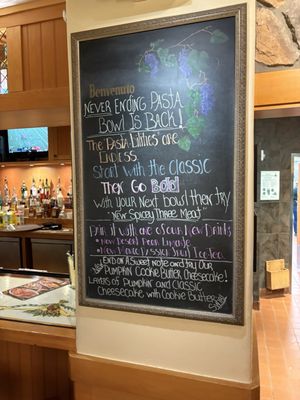 Benvenuto
NEVER ENDING PASTA
BOWL IS BACK!
THE PASTA BILITIES ARE
ENDLESS
START WITH THE CLASSIC
THEN GO BOLD!
WITH YOUR NEXT BOWL THEN TRY
"NEW SPICEY THREE MEAT"
PAIR IT WITH ONE OF OUR NEW DRINKS
NEW DESERT PEAR LIMEADE
NEW MANGO PASSION ICED TEA
END ON A SWEET NOTE AND TRY OUR
NEW PUMPKIN COOKIE BUTTER CHEESECAKE!
LAYERS OF PUMPKIN AND CLASSIC
CHEESECAKE WITH COOKIE BUTTER